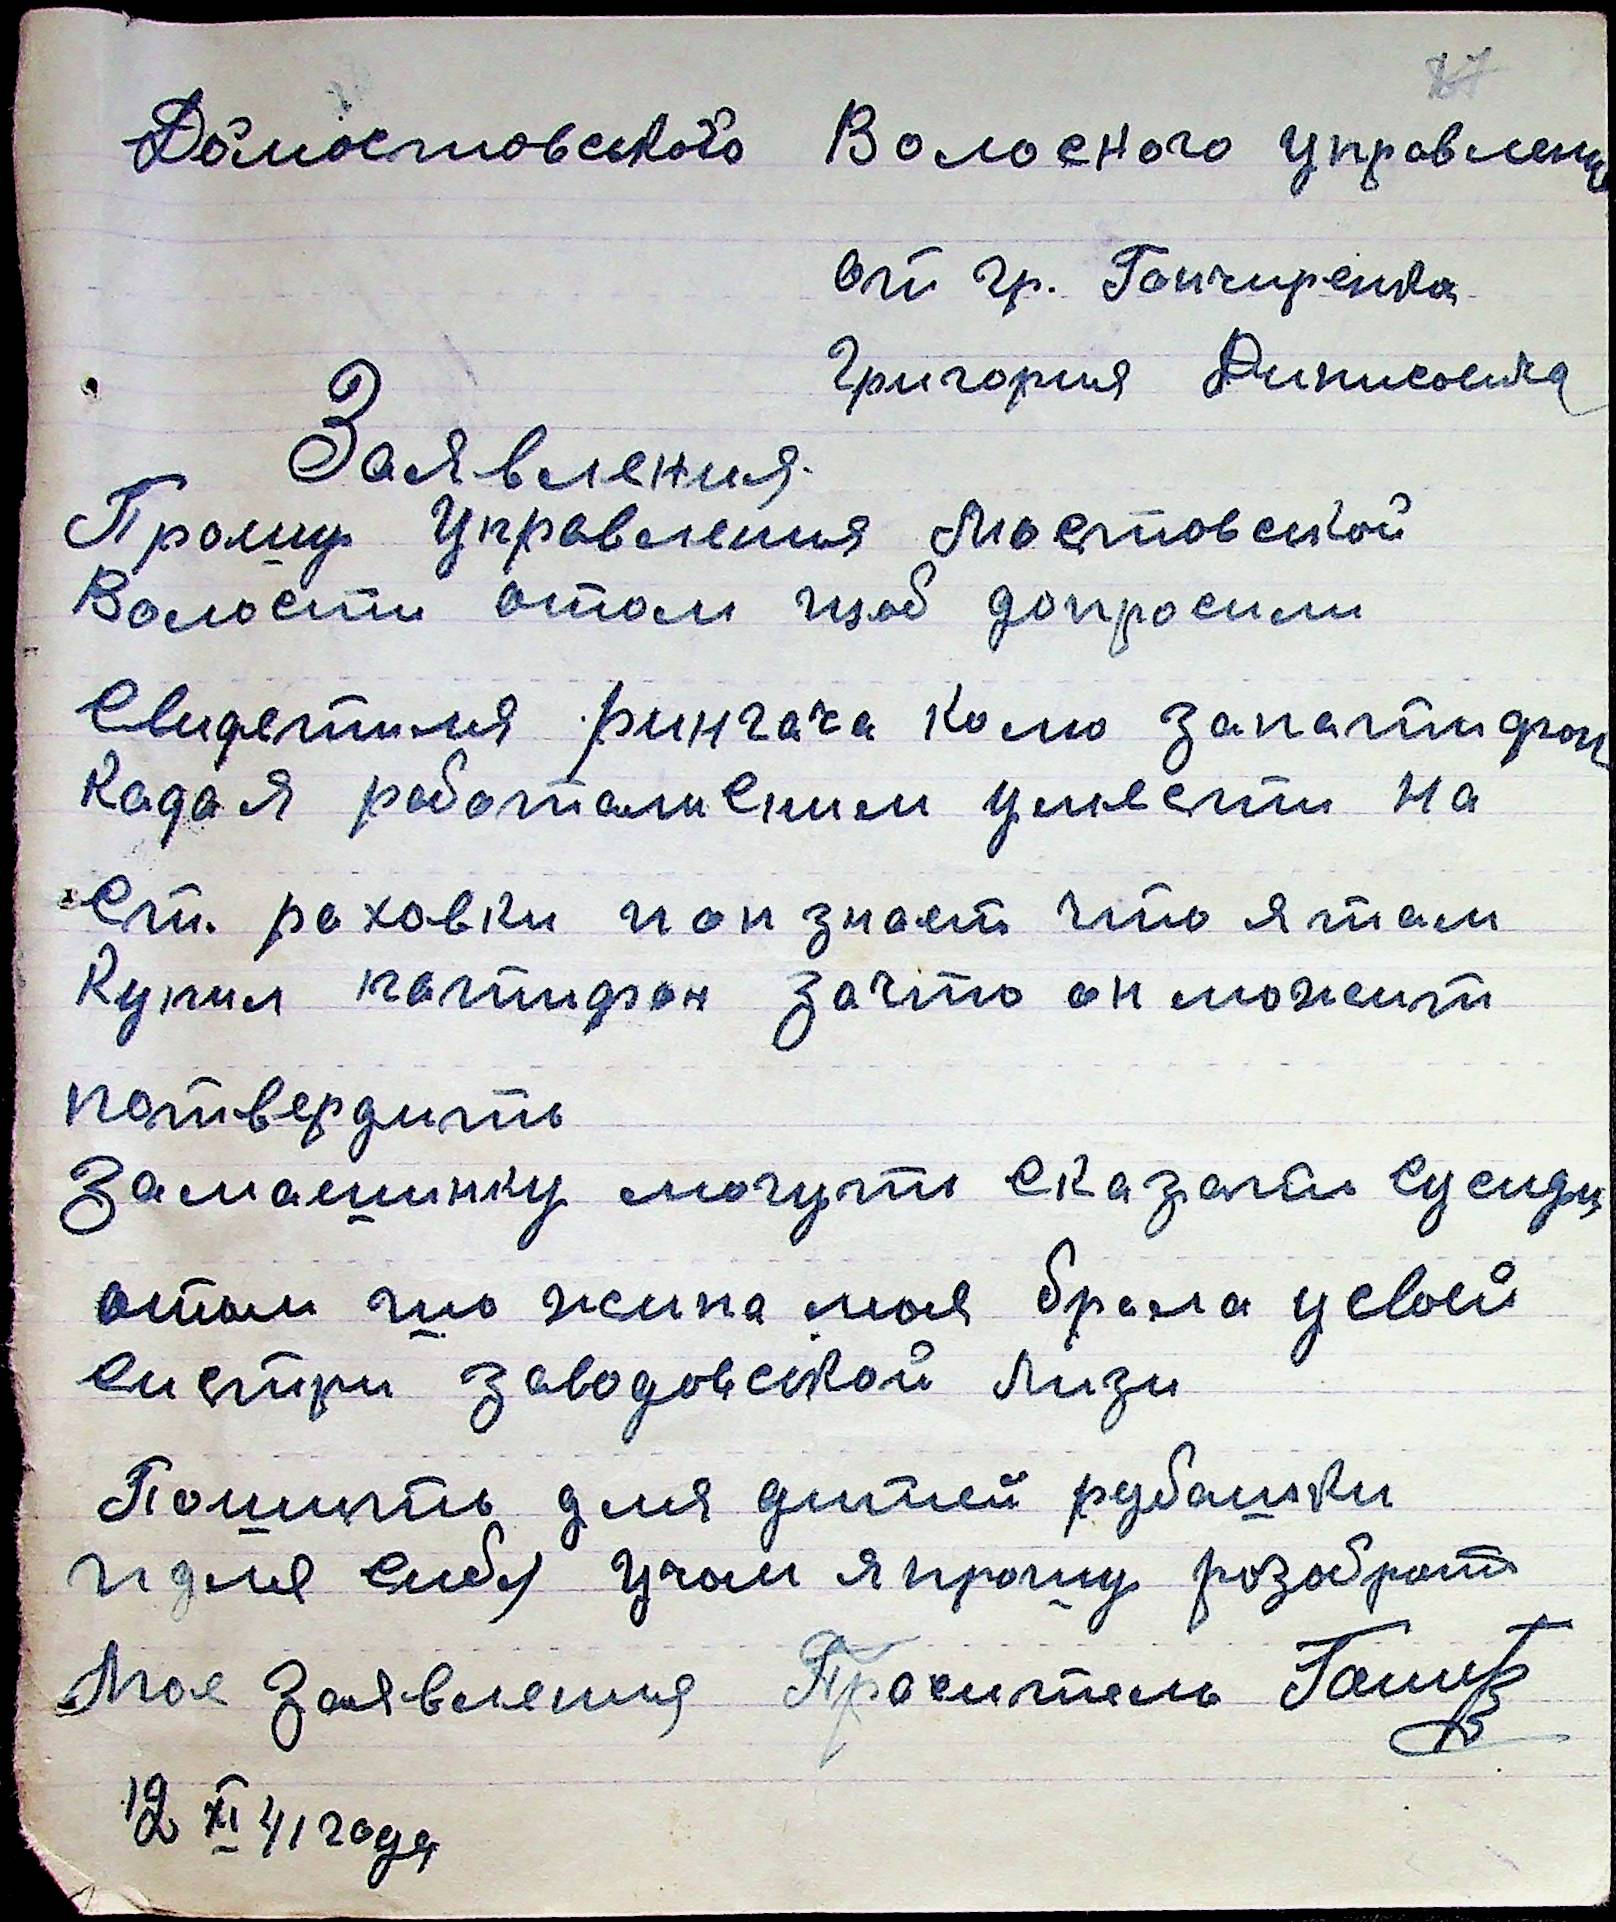 87
Домостовського Волосного управлени
от гр. Гончиренка
Григория Динисовича
Заявления.
Прошу Управления Мостовской
Волости отом щоб допросили
Свидетиля рингача Колю запатифон
Кадая работали сним умести на
Ст. раховки и он знает что я там
Купил патифон зачто он можит
потвердить
Замашинку могуть сказать сусиди
отом що жина моя брала усвой
систри заводовской Лизи
Пошить для дитей рубашки
и для себя Учом я прошу розобрать
Мое Заявления Проситель
12 XI 41 года